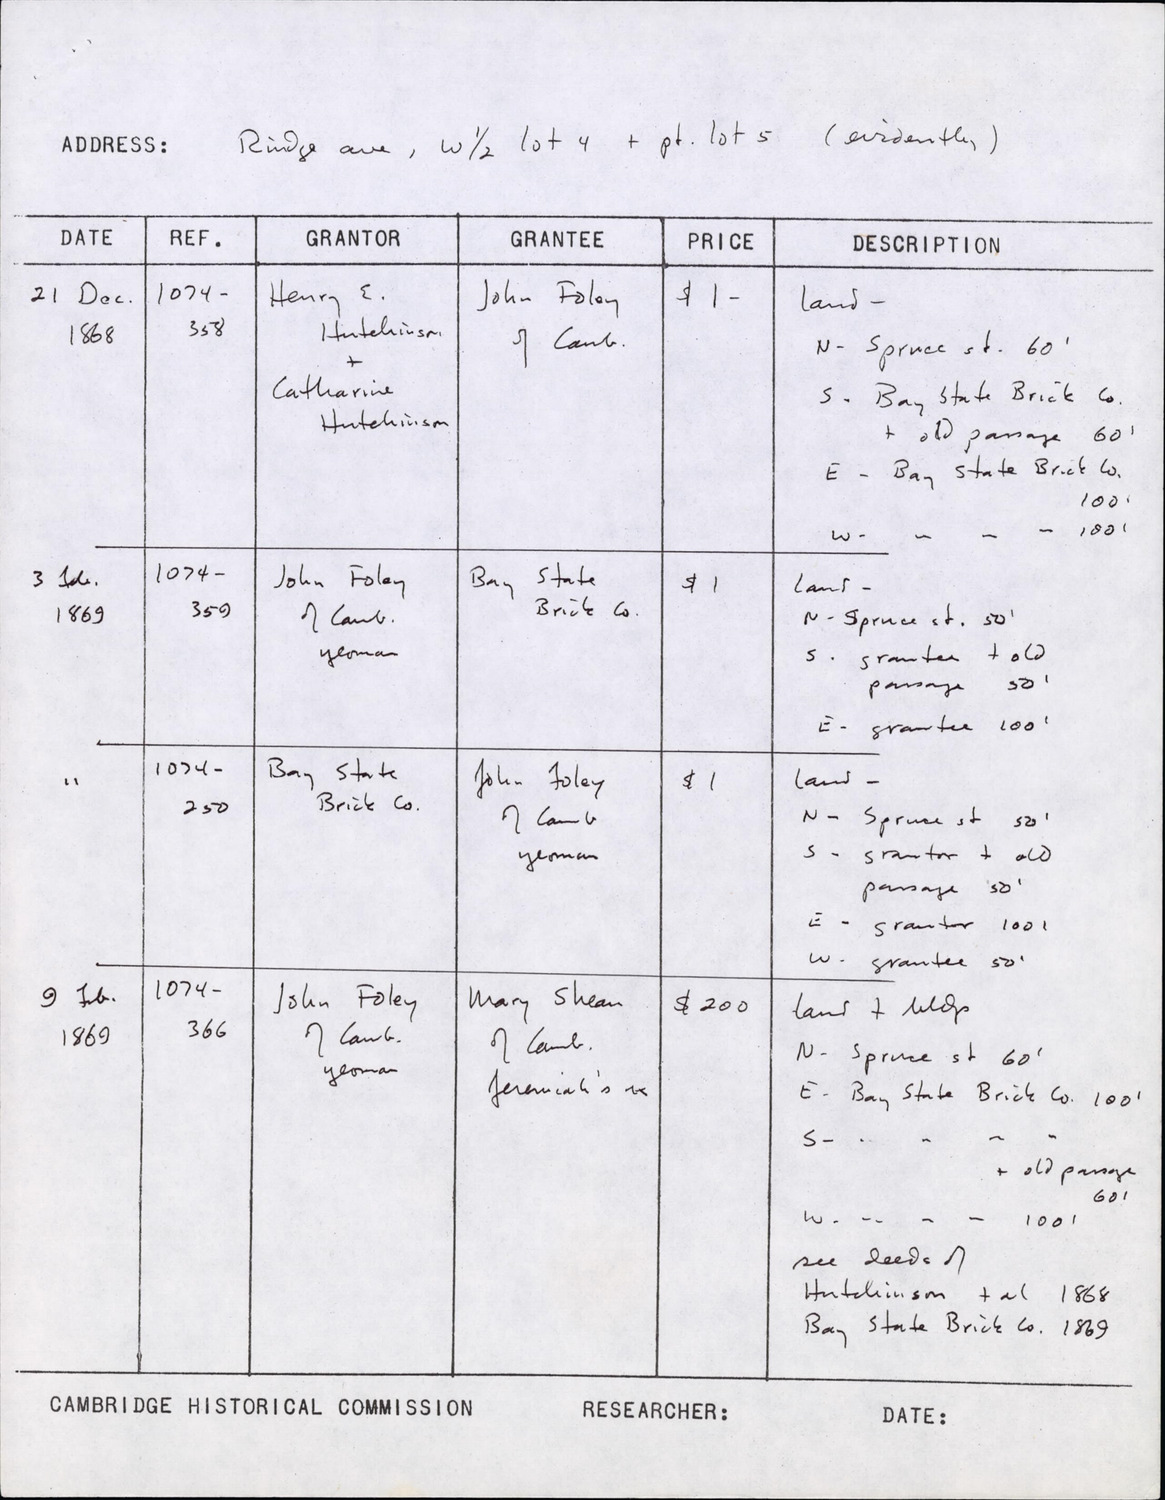 ADDRESS: Rindge ave, W 1/2 lot 4 + pt. lot 5 (evidently)
DATE REF. GRANTOR GRANTEE PRICE DESCRIPTION
21 Dec. 1868
1074-358
Henry E. Hutchinson + Catharine Hutchinson
John Foley of Camb.
$ 1 -
land -
N- Spruce st. 60'
S. Bay State Brick Co.
+ old passage 60'
E - Bay State Brick Co.
100'
W- " " " 100'
3 Feb. 1869
1074-359
John Foley of Camb. yeoman
Bay State Brick Co.
$ 1
land -
N- Spruce st. 50'
S. grantee + old
passage 50'
E- grantee 100'
"
1074-250
Bay State Brick Co.
John Foley of Camb yeoman
$ 1
land -
N- Spruce st 50'
S - grantor + old
passage 50'
E - grantor 100'
W. grantee 50'
9 Feb. 1869
1074-366
John Foley of Camb. yeoman
Mary Shean of Camb. Jeremiah's
$ 200
land + bldgs
N- Spruce st 60'
E- Bay State Brick Co. 100'
S- " " " "
+ old passage
60'
W. " " " 100'
see deeds of
Hutchinson + al 1868
Bay State Brick Co. 1869
CAMBRIDGE HISTORICAL COMMISSION RESEARCHER: DATE: